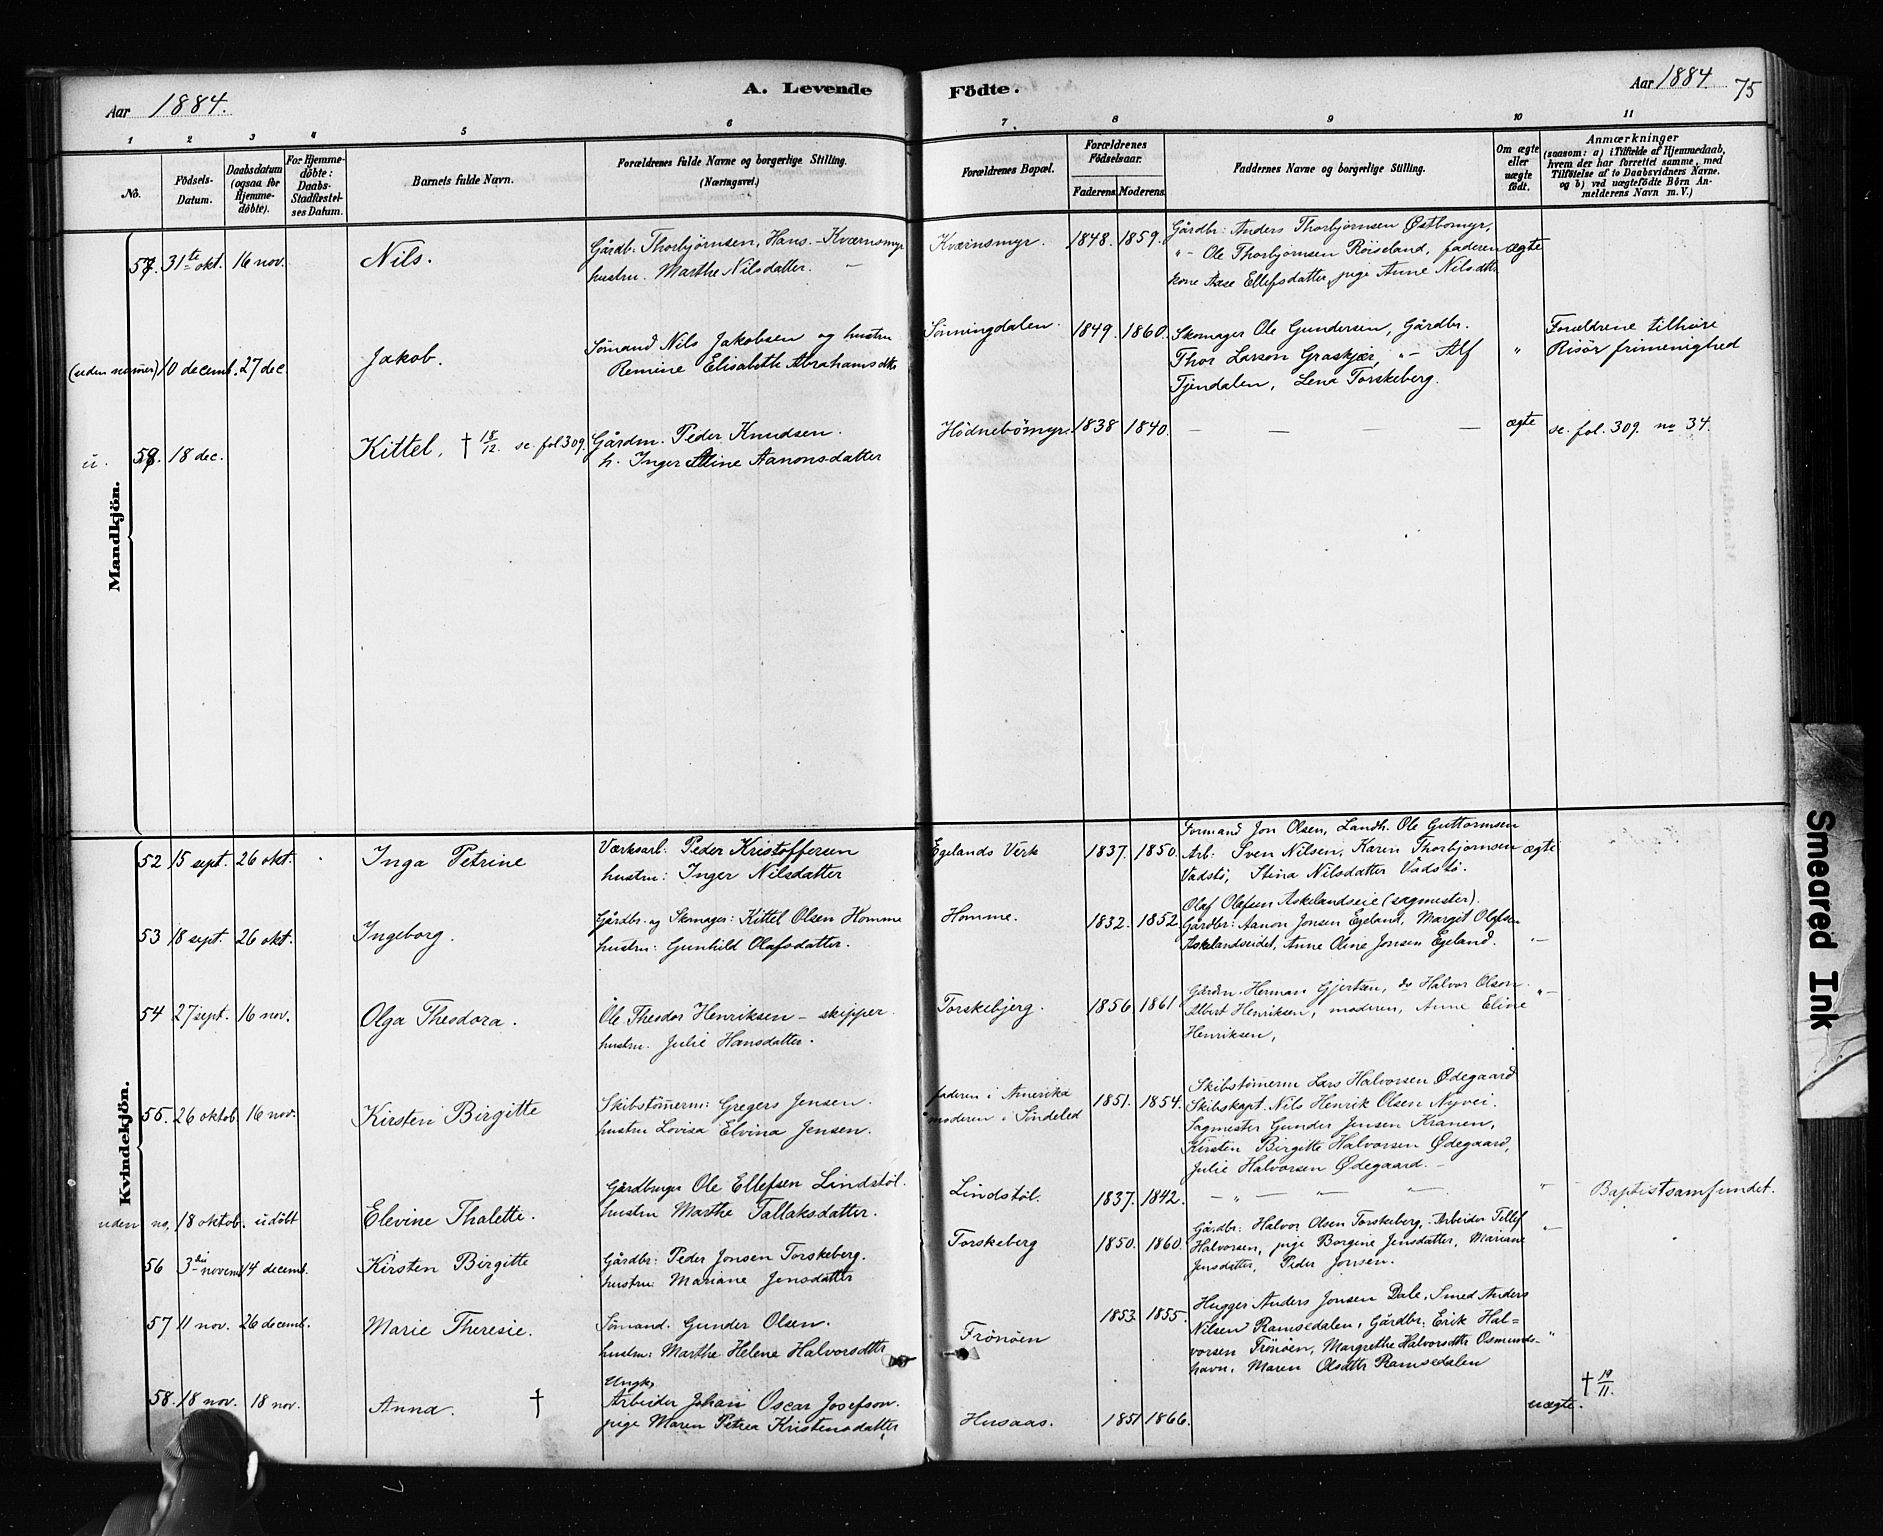 Aar 1884.
A. Levende
Födte.
Aar 1884
75
1 2 3 4 5 6 7. 8 9 10 11
No.
Födsels-
Datum.
Daabsdatum
(ogsaa för
Hjemme-
döbte).
For Hjemme-
döbte:
Daabs-
Stadfæstel-
ses Datum.
Barnets fulde Navn.
Forældrenes fulde Navne og borgerlige Stilling.
(Næringsvei.)
Forældrenes Bopæl.
Forældrenes
Födselsaar.
Faderens. Moderens.
Faddernes Navne og borgerlige Stilling.
Om ægte
eller
uægte
födt.
Anmærkninger
(saasom: a) i Tilfælde af Hjemmedaab,
hvem der har forrettet samme, med
Tilföielse af to Daabsvidners Navne.
og b) ved uægtefödte Börn An-
melderens Navn m. V.)
Mandkjön.
57. 31te okt. 16 nov.
Nils.
Gårdb. Thorbjørnsen, Hans. - Kværnsmyr
hustru. Marthe Nilsdatter. -
Kværnsmyr.
1848. 1859.
Gårdbr: Anders Thorbjørnsen Østbomyr,
" - Ole Thorbjørnsen Røiseland, faderen
kone Aase Ellefsdatter, pige Anne Nilsdttr
ægte
(uden numer) 10 decemb. 27 dec
Jakob.
Sømand Nils Jakobsen og hustru
Remine Elisabeth Abrahamsdttr
Sønningdalen.
1849. 1860.
Skomager Ole Gundersen, Gårdbr.
Thor Larson Graskjær, " - Alf
Tjendalen, Lena Torskeberg.
"
Forældrene tilhøre
Risör frimenighed
u. 58. 18 dec.
Kittel, † 18/12 se fol 309.
Gårdm. Peder Knudsen.
h. Inger Aline Aanonsdatter
Hödnebömyr.
1838 1840.
— — — —
ægte
se. fol. 309. no 34.
Kvindekjön.
52 15 sept. 26 okt.
Inga Petrine
Værksarb. Peder Kristoffersen
hustru: Inger Nilsdatter
Egelands Verk
1837. 1850.
Formand Jon Olsen, Landh. Ole Guttormsen
Arb: Sven Nilsen, Karen Thorbjørnsen
Vadstö, Stina Nilsdatter Vadstö.
ægte
53 18 sept. 26 okt.
Ingeborg.
Gårdbr. og Skomager: Kittel Olsen Homme
hustru: Gunhild Olafsdatter.
Homme.
1832. 1852.
Olaf Olafsen Askelandseie (sagmester).
Gårdbr: Aanon Jonsen Egeland, Margit Olafsen
Askelandseidet, Anne Oline Jonsen Egeland.
"-
54 27 sept. 16 nov.
Olga Theodora.
Ole Theodor Henriksen - skipper.
hustru. Julie Hansdatter.
Torskebjerg.
1856 1861
Gårdm. Herman Gjertsen, do Halvor Olson.
Albert Henriksen, moderen, Anne Eline
Henriksen,
"-
55. 26 oktob. 16 nov.
Kirsten Birgitte
Skibstömerm: Gregers Jensen.
hustru Lovisa Elvina Jensen.
faderen i Amerika
moderen i Söndeled
1851. 1854.
Skibstömerm Lars Halvorsen Ødegaard
Skibskapt. Nils Henrik Olsen Nyvei.
Sagmester Gunder Jensen Kranen,
Kirsten Birgitte Halvorsen Ødegaard,
Julie Halvorsen Ødegaard. -
uden no, 18 oktob. udöbt
Elevine Thalette.
Gårdbruger Ole Ellefsen Lindstöl.
hustru Marthe Tallaksdatter.
Lindstöl.
1837. 1842.
- " - - " - "-
"
Baptistsamfundet.
56 3die novemb 14 decemb.
Kirsten Birgitte
Gårdbr: Peder Jonsen Torskeberg.
hustru: Mariane Jensdatter
Torskeberg
1850. 1860.
Gårdbr: Halvor Olsen Torskeberg, Arbeider Tellef
Halvorsen, pige Borgine Jensdatter, Mariane
Jensdatter, Peder Jonsen.
"-
57 11 nov. 26 decemb.
Marie Theresie.
Sømand. Gunder Olsen.
hustru: Marthe Helene Halvorsdttr
Frönöen
1853. 1855.
Hugger Anders Jonsen Dale, Smed Anders
Nilsen Ramsedalen, Gårdbr: Erik Hal-
vorsen Frönöen, Margrethe Halvorsdttr Osmunds-
havn, Maren Olsdttr Ramsedalen
"
58. 18 nov. 18 nov.
Anna. †
Ungk.
Arbeider Johan Oscar Josefson.
pige Maren Petrea Kristensdatter,
Husaas.
1851 1866.
uægte.
† 19/11.
Smeared Ink